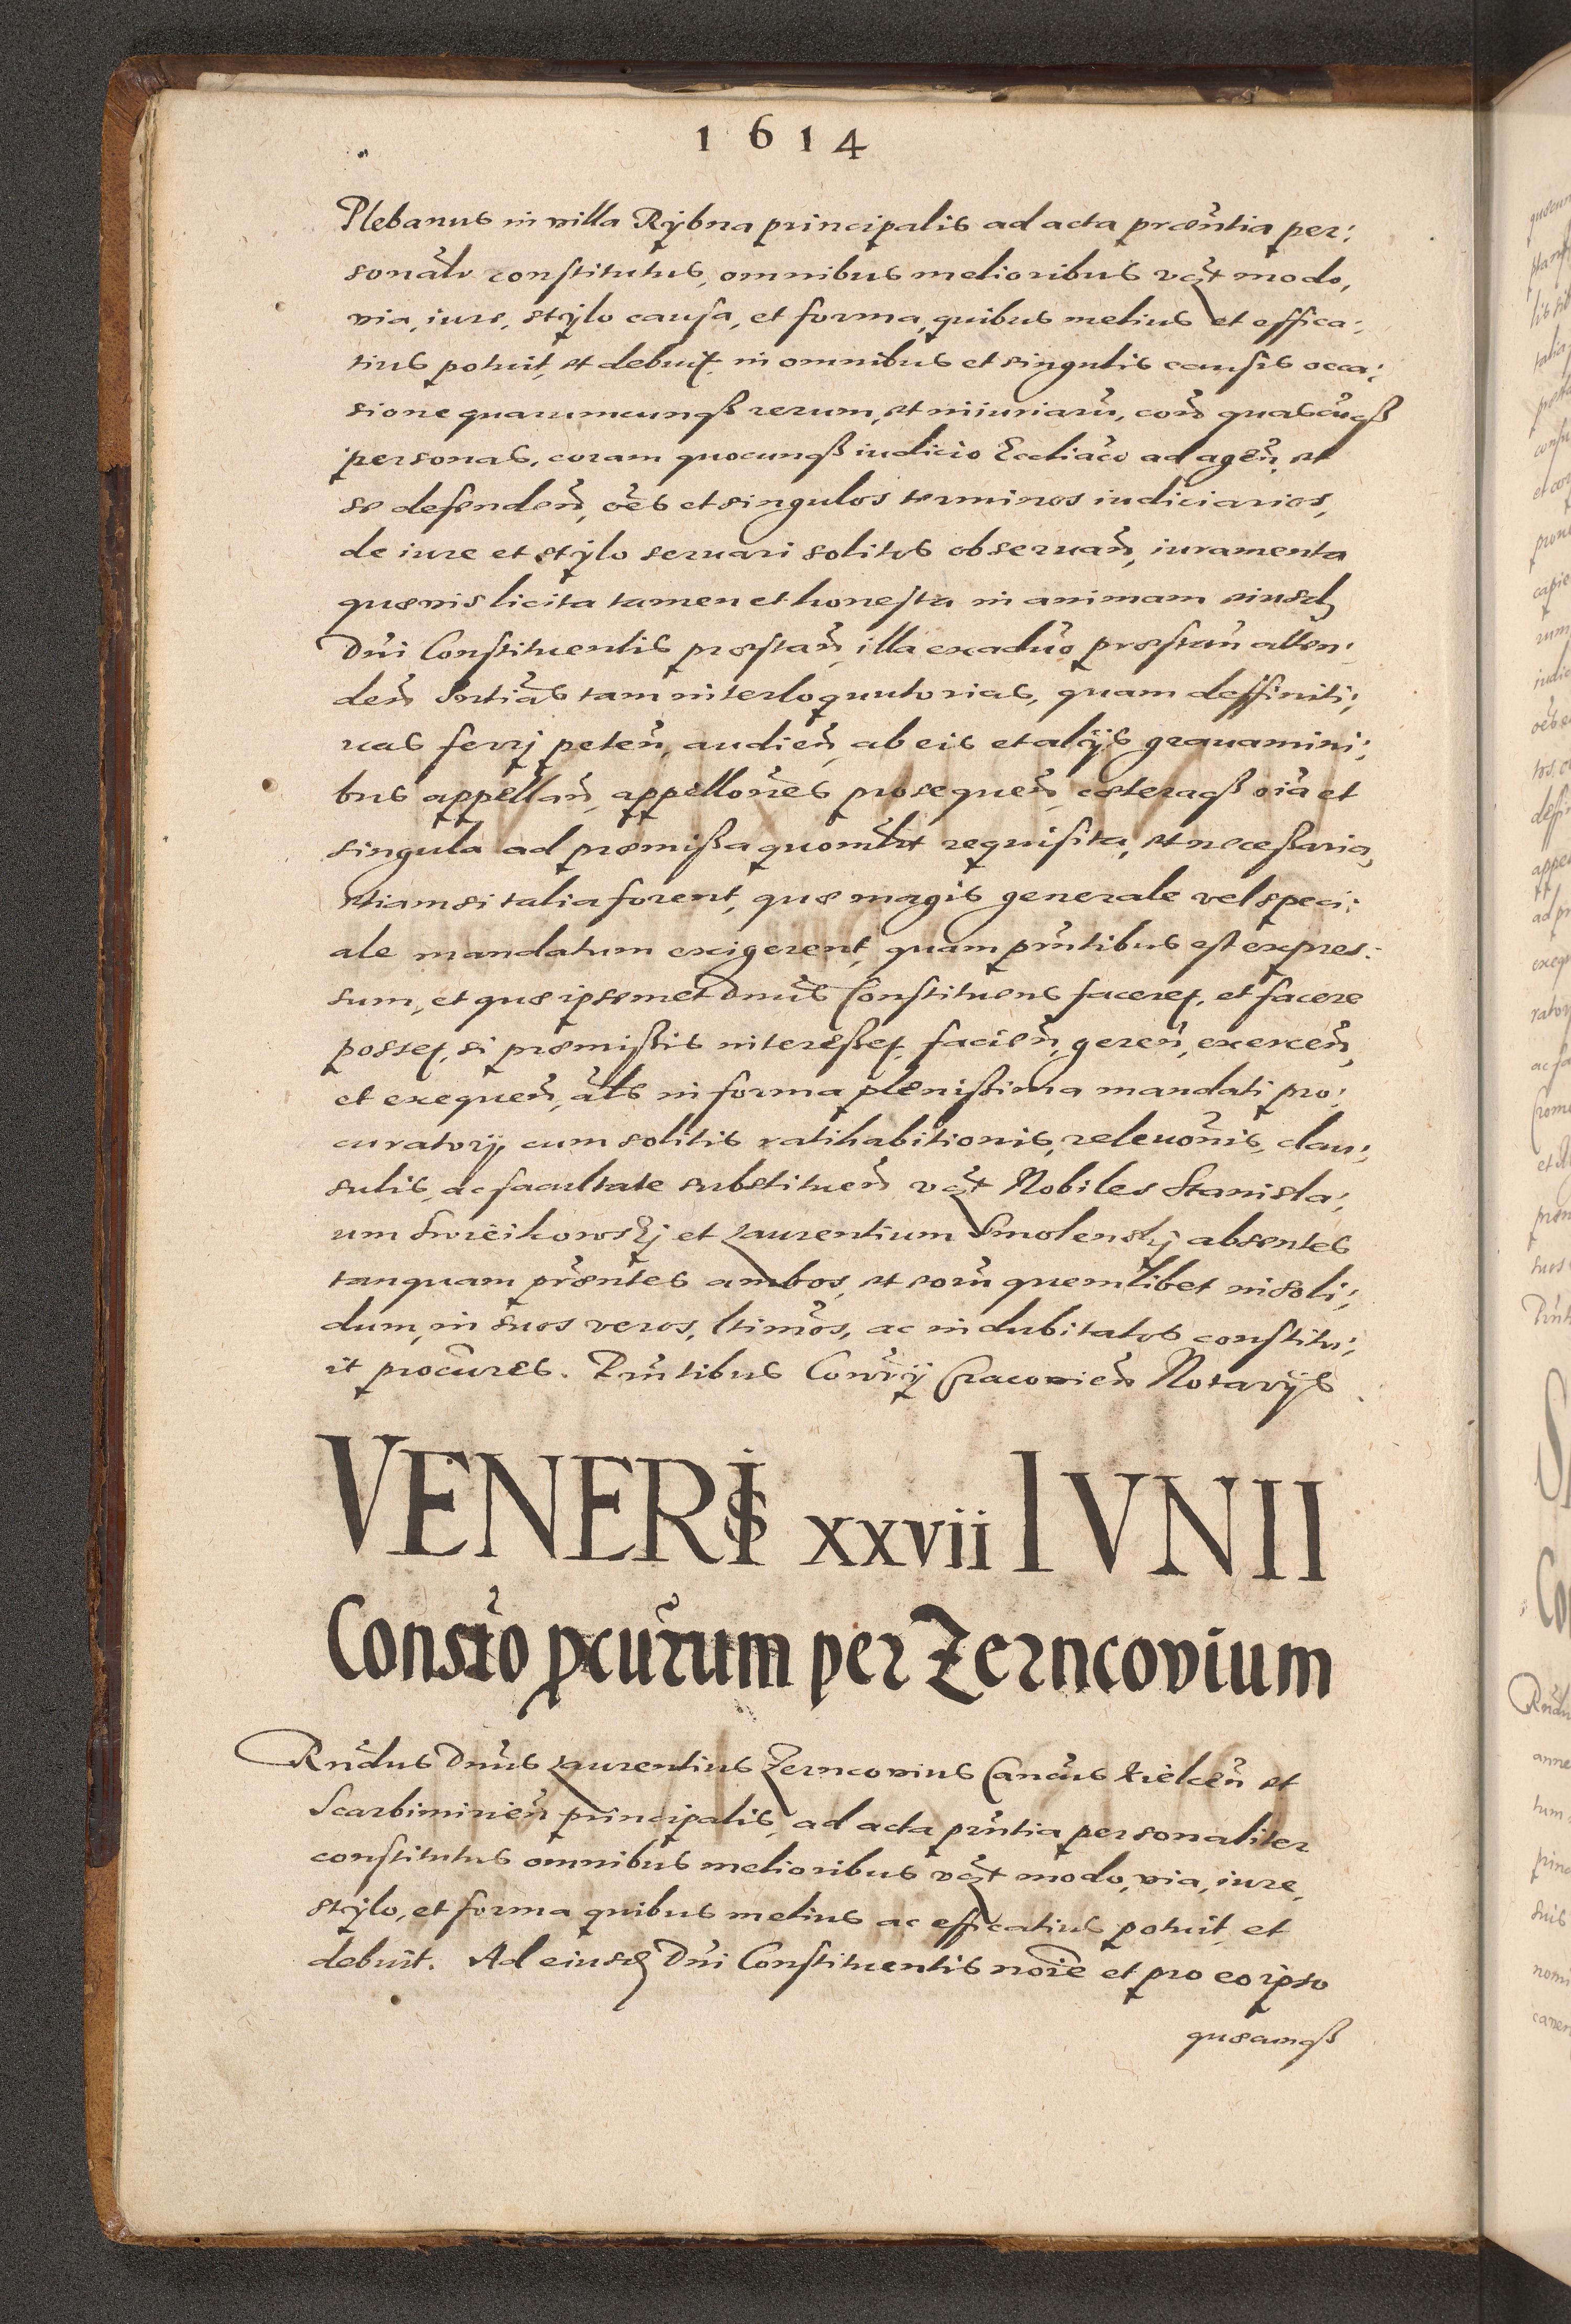 1614
Plebanus in villa Rÿbna principalis ad acta præñtia per:
sonalr constitutus, omnibus melioribus modo,
via, iure, stÿlo causa, et forma, quibus melius et effica:
tius potuit, et debuit, in omnibus et singulis causis occa:
sione quarumcunqß rerum, et iniuriarũ, coñ quascũqß
personas, coram quocunqß iudicio Eccliãco ad ageñ, et
se defendeñ, oẽs et singulos terminos iudiciarios,
de iure et stÿlo servari solitos observañ, iuramenta
quævis licita tamen et honesta in animam eiusd
Dñi Constituentis præstañ, illa ex aduõ præstari atten:
deñ Sñtias tam interloquutorias, quam deffiniti:
vas ferrj peteñ, audieñ, ab eis et alÿs gravamini:
bus appellañ, appelloñes prosequeñ, cæteraqß oĩa et
singula ad præmißa quomlbt requisita, et neceßaria,
etiam si talia forent, quæ magis generale vel speci:
ale mandatum exigerent, quam pñtibus est expres:
sum, et quæ ipsemet Dnũs Constituens faceret, et facere
posset, si præmißis intereßet, facieñ, gereñ, exerceñ,
et exequeñ, als in forma plenißima mandati pro:
curatorÿ, cum solitis ratihabitionis, relevoñis, clau:
sulis, ac facultate substitueñ Nobiles Stanisla:
um et Laurentium Smolenskj absentes
tanquam præñtes ambos, et eorũ quemlibet in soli:
dum, in suos veros, ltimos, ac indubitatos constitu:
it procũres. Pñtibus Conrÿ Cracovieñ Notarÿs
VENERIS xxvii IVNII
Constõ pcũrum per Zerncovium
Rñdus Dnũs Laurentius Zerncovius Canc̃us Kielceñ et
Scarbimirieñ principalis, ad acta pñtia personaliter
constitutus omnibus melioribus modo, via, iure,
stÿlo, et forma quibus melius ac efficatius potuit, et
debuit. Ad eiusd Dñi Constituentis noĩe et pro eo ipso
quæcunqß